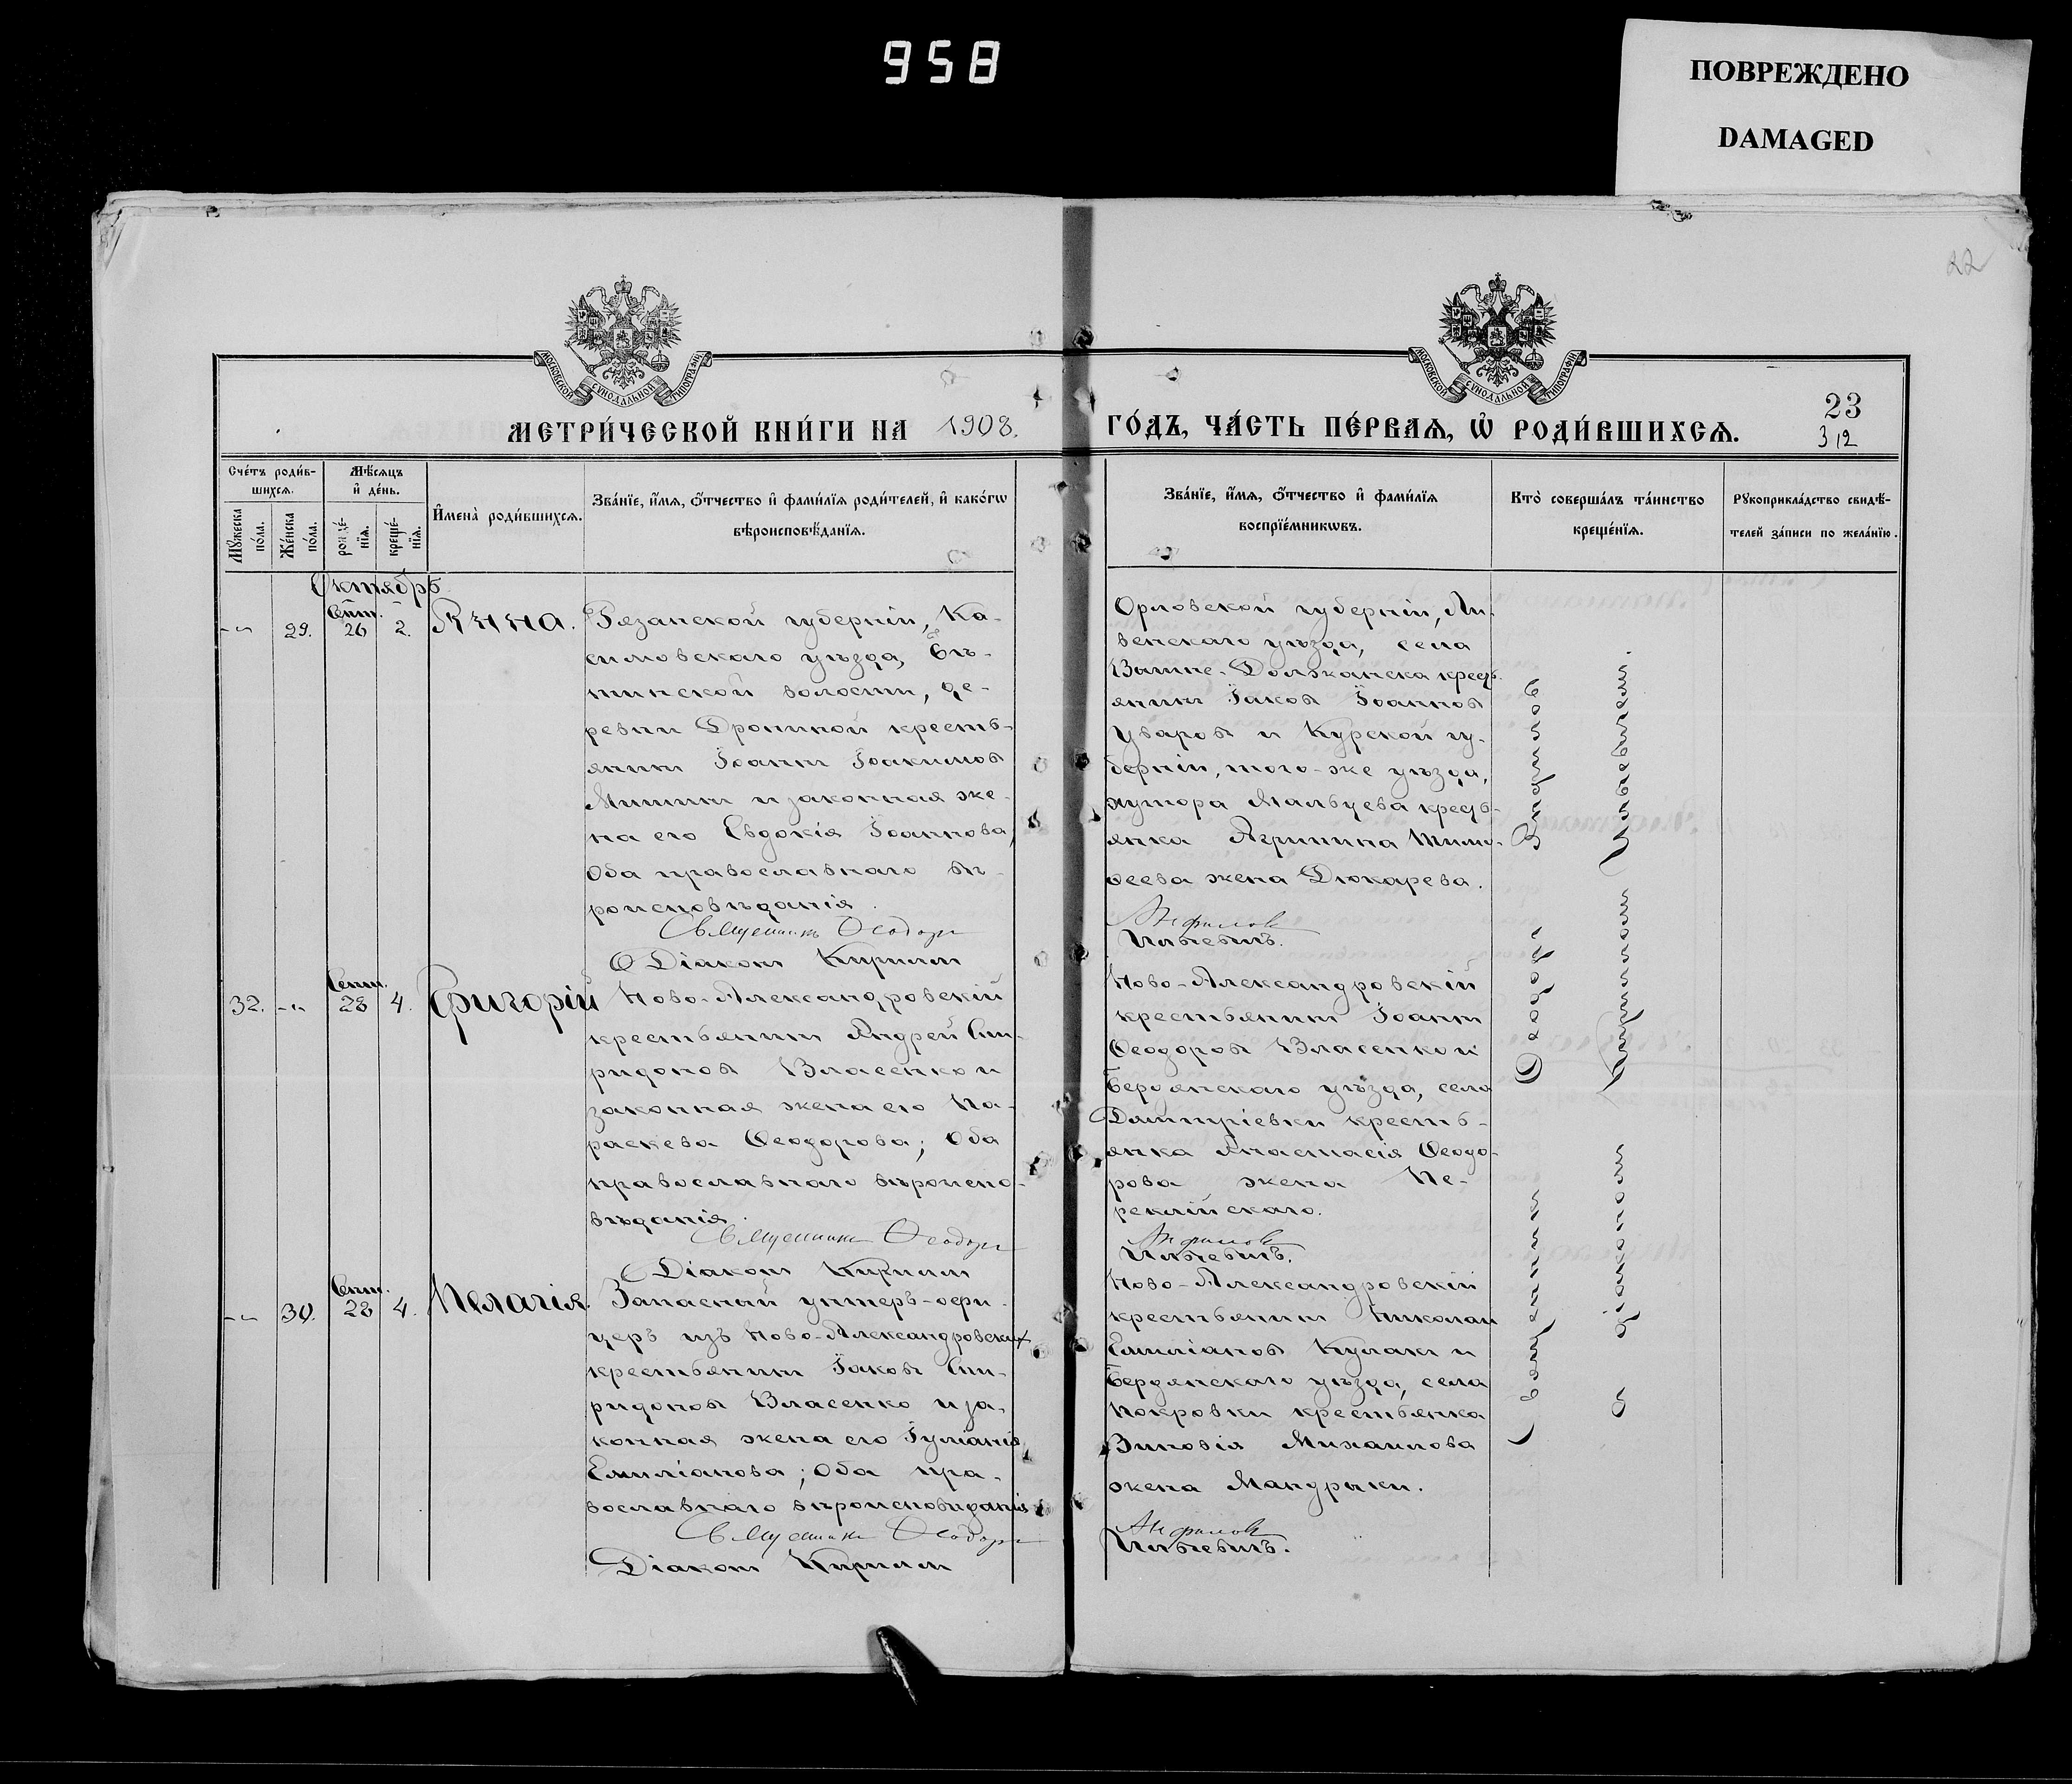 958
ПОВРЕЖДЕНО
DAMAGED
22
МОСКОВСКОЙ СѴНОДАЛЬНОЙ ТИПОГРАФІИ
МОСКОВСКОЙ СѴНОДАЛЬНОЙ ТИПОГРАФІИ
МЕТРИ́ЧЕСКОЙ КНИ́ГИ НА 1908.
ГО́ДЪ, ЧА́СТЬ ПЕ́РВАѦ, Ѽ РОДИ́ВШИХСѦ.
23
312
Сче́тъ роди́в-
шихсѧ.
Мꙋ́жеска по́ла.
Же́нска по́ла.
Мѣ́сѧцъ
и҆ де́нь.
рожде́-
нїѧ.
креще́-
нїѧ.
И҆мена̀ роди́вшихсѧ.
Зва́нїе, и҆́мѧ, ѻ҆́тчество и҆ фами́лїѧ роди́телей, и҆ како́гѡ
вѣроисповѣ́данїѧ.
Зва́нїе, и҆́мѧ, ѻ҆́тчество и҆ фами́лїѧ
воспрїе́мникѡвъ.
Кто̀ соверша́лъ та́инство
креще́нїѧ.
Рꙋкоприкла́дство свидѣ́-
телей за́писи по жела́нїю.
Октябрь
29.
Сент.
26
2.
Анна.
Рязанской губерніи, Ка-
симовскаго уѣзда, Бѣ-
тинской волости, де-
ревни Дрониной кресть-
янинъ Іоаннъ Іоакимовъ
Мишинъ и законная же-
на его Евдокія Іоаннова,
Оба православнаго вѣ-
роисповѣданія.
Священникъ Ѳеодоръ
Діаконъ Кириллъ
Орловской губерніи, Ли-
венскаго уѣзда, села
Вышне-Должанска кресть-
янинъ Іаковъ Іоанновъ
Уваровъ и Курской гу-
берніи, того-же уѣзда,
хутора Мальцева кресть-
янка Агрипина Тимо-
ѳеева жена Дюкарева.
Анфиловъ
Ильевичъ.
32.
Сент.
28
4.
Григорій
Ново-Александровскій
крестьянинъ Андрей Спи-
ридоновъ Власенко и
законная жена его Па-
раскева Ѳеодорова; Оба
православнаго вѣроиспо-
вѣданія.
Священникъ Ѳеодоръ
Діаконъ Кириллъ
Ново-Александровскій
крестьянинъ Іоаннъ
Ѳеодоровъ Власенко и
Бердянскаго уѣзда, села
Дмитріевки кресть-
янка Анастасія Ѳеодо-
рова жена Пе-
реклійскаго.
Анфиловъ
Ильевичъ.
30.
Сент.
28
4.
Пелагія.
Запасный унтеръ-офи-
церъ изъ Ново-Александровских
крестьянинъ Іаковъ Спи-
ридоновъ Власенко и за-
конная жена его Іуліанія
Емиліанова; Оба пра-
вославнаго вѣроисповѣданія
Священникъ Ѳеодоръ
Діаконъ Кириллъ
Ново-Александровскій
крестьянинъ Николай
Емиліановъ Кулакъ и
Бердянскаго уѣзда, села
Покровки крестьянка
Зиновія Михаилова
жена Мандрыки.
Анфиловъ
Ильевичъ.
Священникъ Ѳеодоръ Анфиловъ
съ діакономъ Кирилломъ Ильевичемъ.